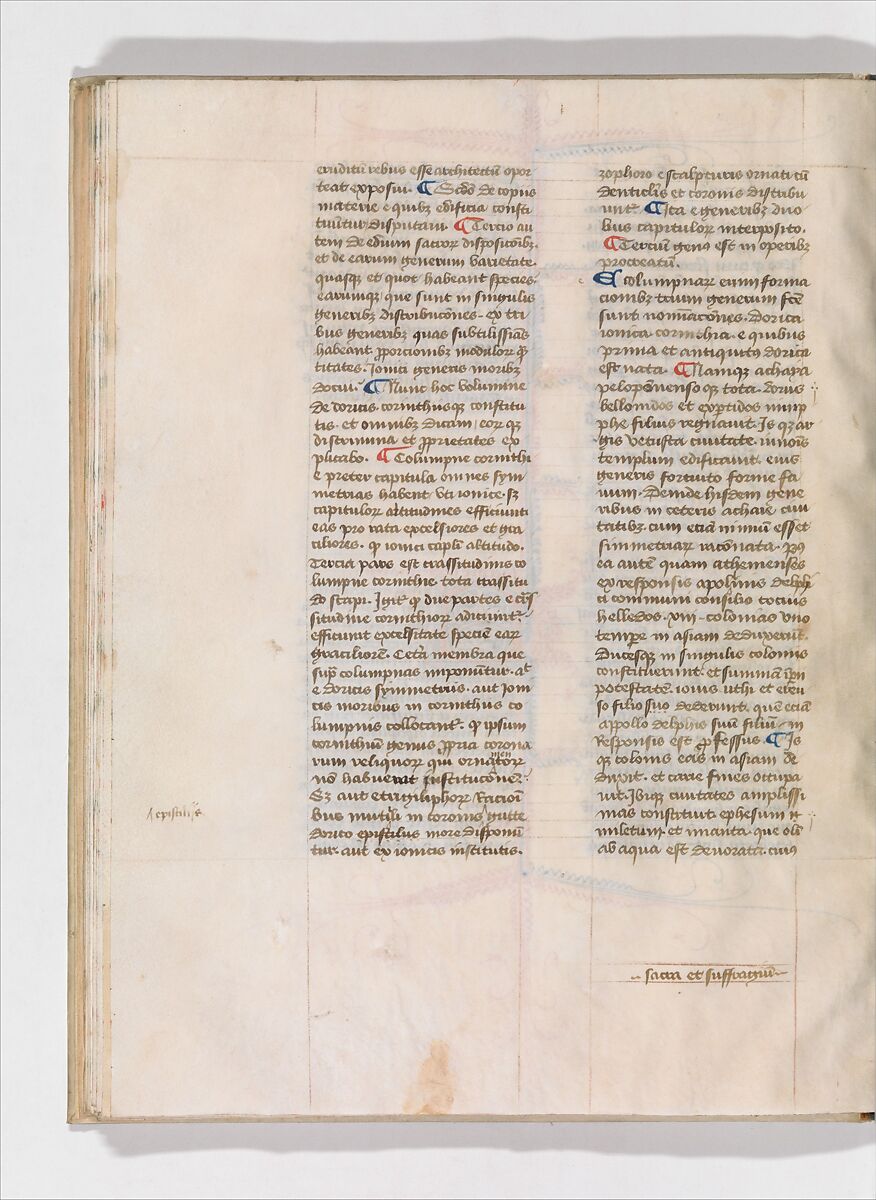 eruditū rebus esse architectū opor
teat exposui. ¶ Scdo de copiis
materie e quibꝫ edificia consti
tuūtur disputaui. ¶ Tercio au
tem de edium sacroꝝ disposicōibꝫ
et de earum generum varietate.
quasqꝫ et quot habeant species.
earumqꝫ que sunt in singulis
generibꝫ distribucōnes. ex tri
bus generibꝫ quas subtilissīas
habeant ꝓporcionibꝫ moduloꝝ qᵃ̄
titates. Ionici generis moribꝫ
docui. ¶ Nunc hoc volumine
de doricis. corinthiisqꝫ constitu
tis. et omnibꝫ dicam. eoꝝ qꝫ
discrimina et ꝓprietates ex
plicabo. ¶ Columpne corinthi
e preter capitula omnes sym
metrias habent vti ionice. sꝫ
capituloꝝ altitudines efficiunt
eas pro rata excelsiores et gra
ciliores. qꝫ ionici capl̄i altitudo.
Tercia pars est crassitudinis co
lumpne corinthie. tota crassitu
do scapi. Igit̄ qꝫ due partes e cͣs
situdine corinthioꝝ adiciunt̄.
efficiunt excelsitate speciē eaꝝ
graciliorē. Cetͣa membra que
supͣ columpnas imponūtur. at
e doricis symmetriis. aut Ioni
cis moribus in corinthiis co
lumpnis collocant̄. qꝫ ipsum
corinthiū genus ꝓpria corona
rum reliquoꝝ qꝫ ornatoꝝ
men
nō habuerat institucōnē.
Sꝫ aut e trigliphoꝝ racioī
bus mutili in coronis gutte
epistiliis
dorico epistilus more disponū
tur. aut ex ionicis institutis.
zophoro e scalpturis ornati cū
denticlis et coronis distribu
unt̄. ¶ Ita e generibꝫ duo
bus capituloꝝ interposito.
¶ Terciū genꝰ est in operibꝫ
procreatū.
E columpnaꝝ enim forma
cionibꝫ trium generum fc̄e
sunt nomīacōnes. dorica
ionica. corinthia. e quibus
prima et antiquitus dorica
est nata. ¶ Namqꝫ achaya
peloponenso qꝫ tota. dorus
bellonidos et exꝑtidos nimp
phe filius regnauit. Is qꝫ ar
gis vetusta ciuitate. iunōis
templum edificauit. eius
generis fortuito forme fa
num. Deinde hisdem gene
ribus in ceteris achaie ciui
tatibꝫ. cum eciā nūnū esset
simmetriaꝝ racōnata.
ea autē quam athenienses
ex responsis apolinis delphi
ci communi consilio tocius
helledos. xiii. colonias vno
tempe in asiam deduxerūt.
Ducesqꝫ in singulis coloniis
constituerūt. et summā ipīi
potestatē. iouis uthi et creu
so filio suo dederunt. quē eciā
appollo delphis suū filiū. in
responsis est ꝓfessus. ¶ Is
qꝫ colonis eas in asiam de
duxit. et carie fines occupa
uit. Ibiqꝫ ciuitates amplissi
mas constituit. ephesum
miletum. et mianta. que olī
ab aqua est deuorata. cuiꝰ
sacra et suffragiū